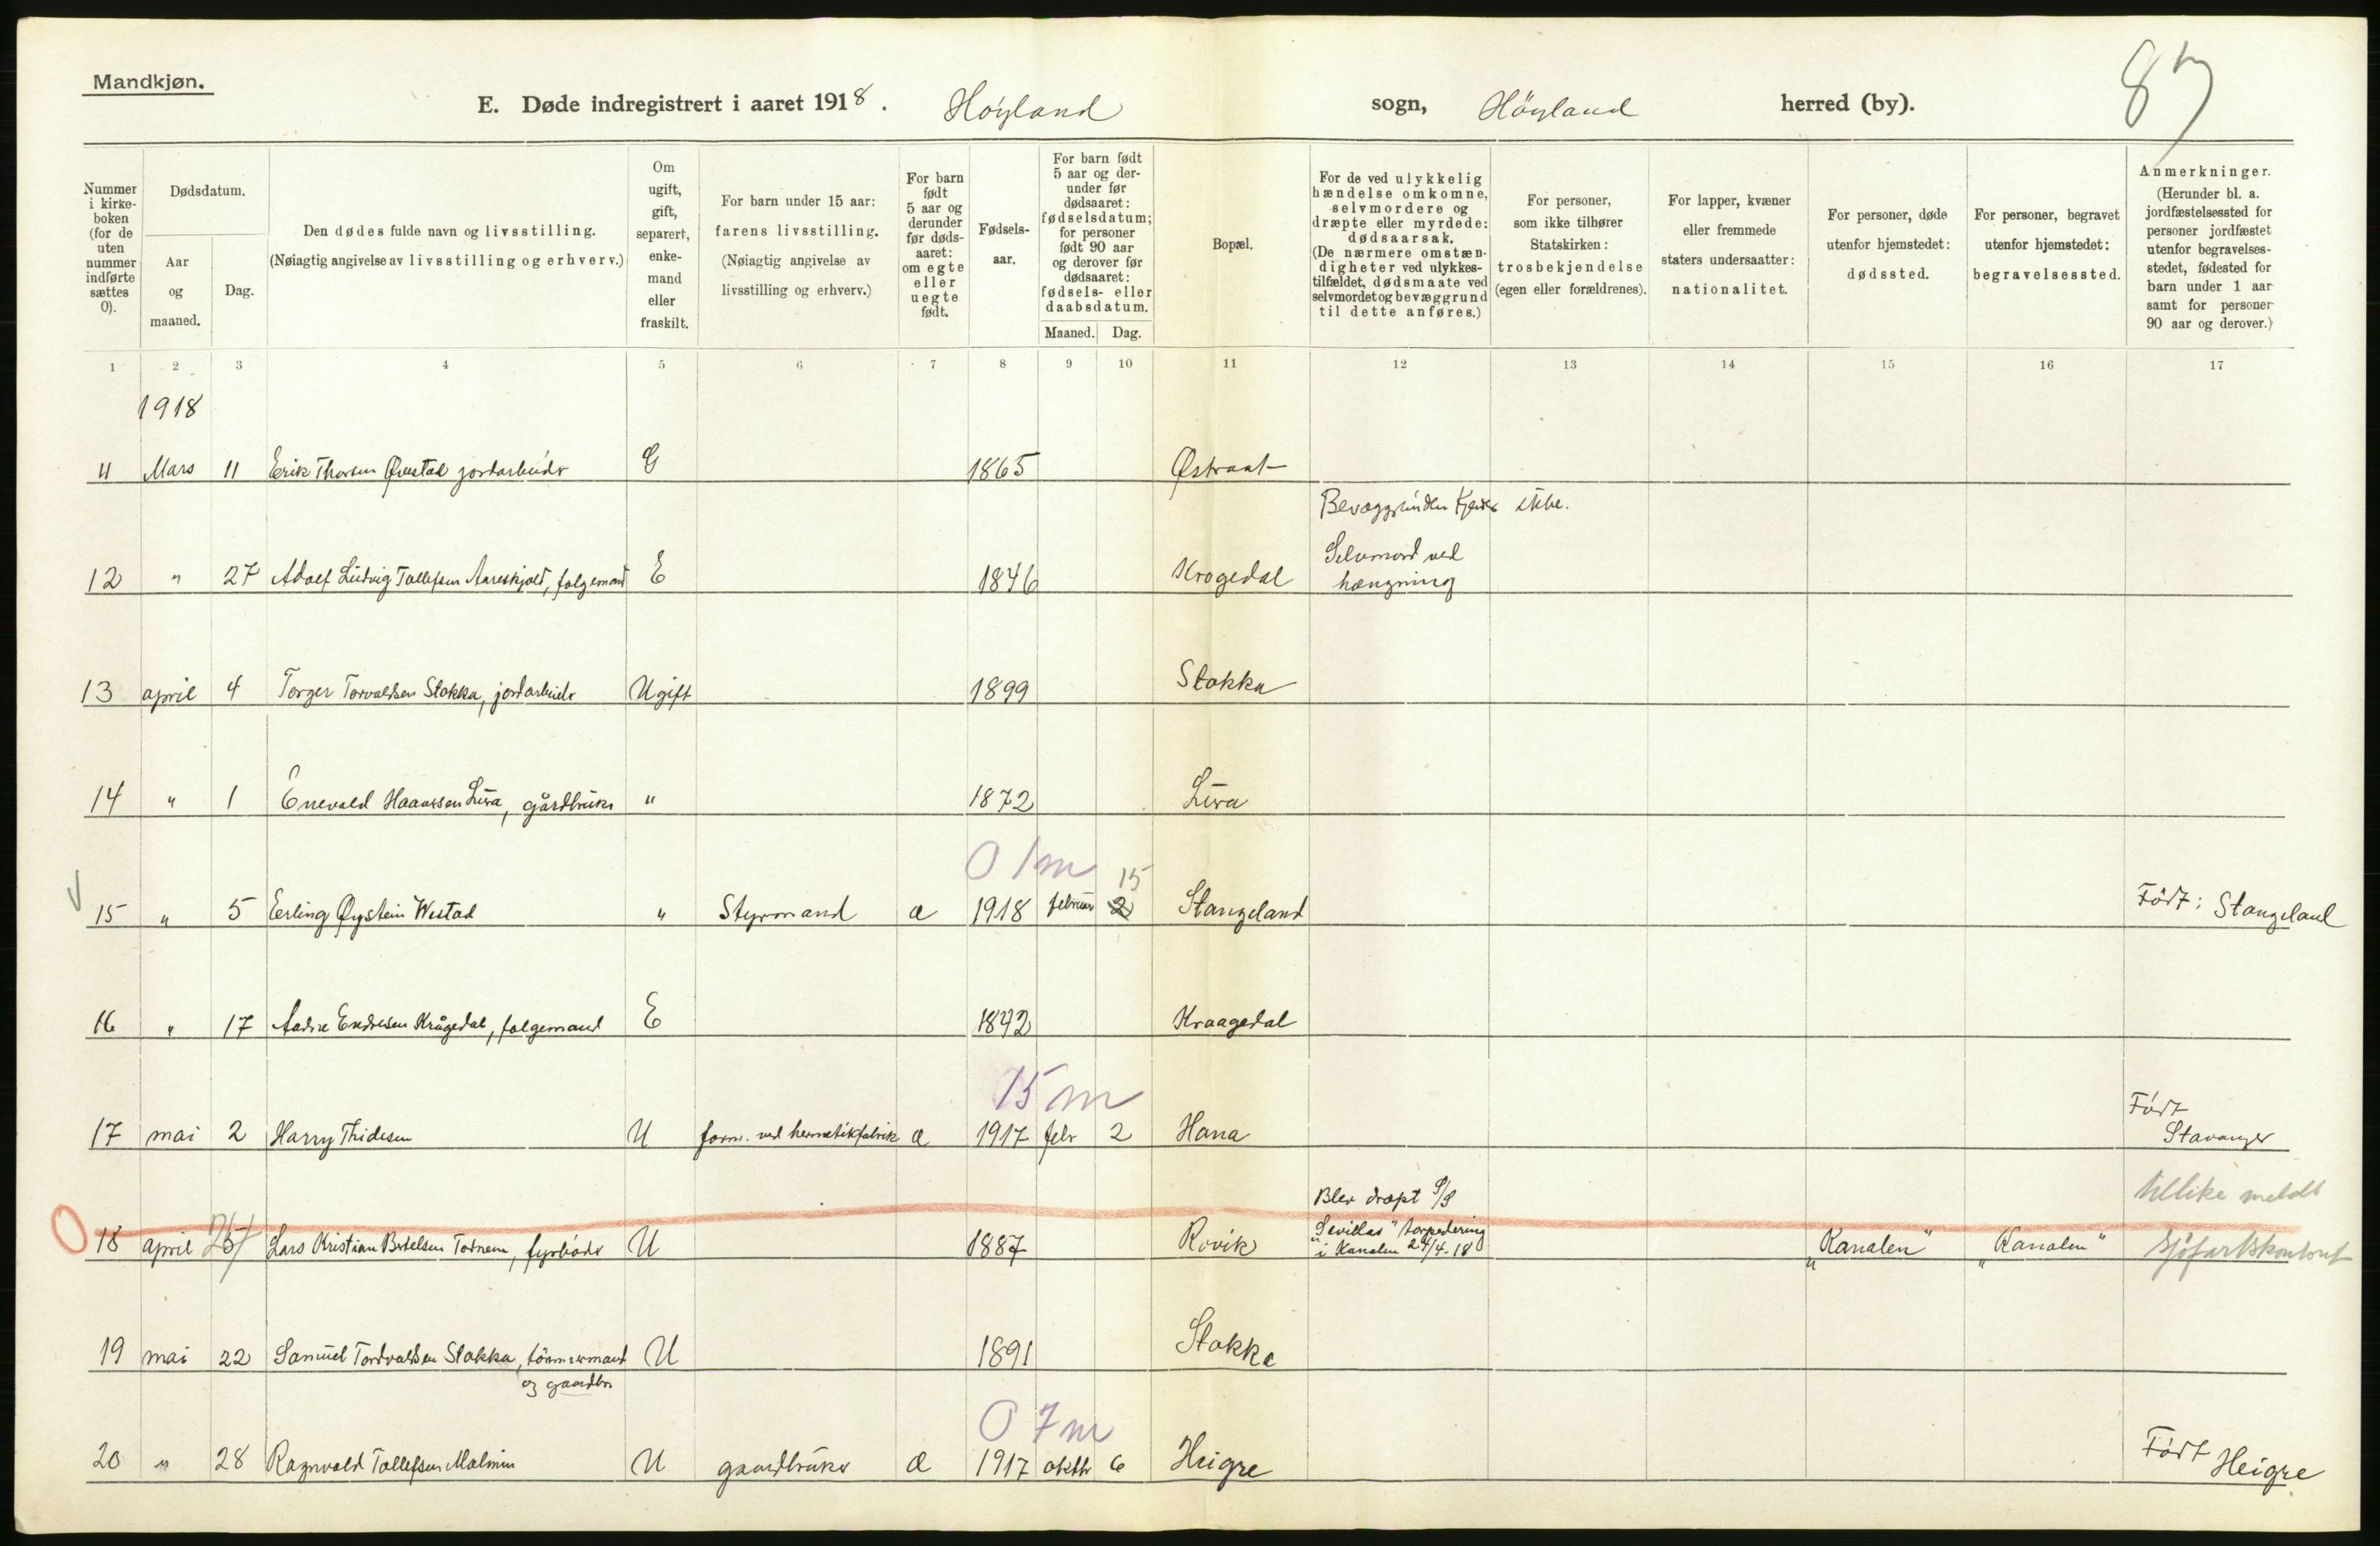 Mandkjøn.
E. Døde indregistrert i aaret 1918. Höyland sogn, Höyland herred (by). 87
Nummer i kirke-boken (for de uten nummer indførte sættes 0).
Dødsdatum.
Aar og maaned.
Dag.
Den dødes fulde navn og livsstilling.
(Nøiagtig angivelse av livsstilling og erhverv.)
Om ugift, gift, separert, enke-mand eller fraskilt.
For barn under 15 aar: farens livsstilling. (Nøiagtig angivelse av livsstilling og erhverv.)
For barn født 5 aar og derunder før døds-aaret: om egte eller uegte født.
Fødsels-aar.
For barn født 5 aar og der-under før dødsaaret: fødselsdatum; for personer født 90 aar og derover før dødsaaret: fødsels- eller daabsdatum.
Maaned. Dag.
Bopæl.
For de ved ulykkelig hændelse omkomne, selvmordere og dræpte eller myrdede: dødsaarsak. (De nærmere omstæn-digheter ved ulykkes-tilfældet, dødsmaate ved selvmordet og bevæggrund til dette anføres.)
For personer, som ikke tilhører Statskirken: trosbekjendelse (egen eller forældrenes).
For lapper, kvæner eller fremmede staters undersaatter: nationalitet.
For personer, døde utenfor hjemstedet: dødssted.
For personer, begravet utenfor hjemstedet: begravelsessted.
Anmerkninger. (Herunder bl. a. jordfæstelsessted for personer jordfæstet utenfor begravelses-stedet, fødested for barn under 1 aar samt for personer 90 aar og derover.)
1 2 3 4 5 6 7 8 9 10 11 12 13 14 15 16 17
1918
11 Mars 11 Erik Thorsen jordarbeider G 1865 Østraat
Bevæggrunden kjendes ikke.
Selvmord ved
12 " 27 Adolf Ludvig Tollefsen Aareskjold, folgemand E 1846 Krogedal hængning
13 april 4 Torger Torvaldsen Stokka, jordarbeider Ugift 1899 Stokka
14 " 1 Enevald Haaversen Lura, gårdbruker " 1872 Lura
0 1 m 15
15 " 5 Erling Øystein Westad " Styrmand e 1918 februar 2 Stangeland Födt: Stangeland
16 " 17 Endresen Krågedal, folgemand E 1842 Kraagedal
15 m
Födt
17 mai 2 Harry Thidesen U form. ved hermetikfabrik e 1917 febr 2 Hana Stavanger
Blev dræpt v/d tillike meldt
"Sevillas" torpedering
18 april 25 Lars Kristian Bertelsen Totnem, fyrböder U 1887 Rovik i Kanalen 24/4-18 "Kanalen" "Kanalen" sjöfartskontoret
19 mai 22 Samuel Tordvaldsen Stokka, tömmermand U 1891 Stokka
og gaardbr
0 7 m
20 " 28 Ragnvald Tollefsen Malmin U gaardbruker e 1917 oktbr 6 Heigre Födt Heigre